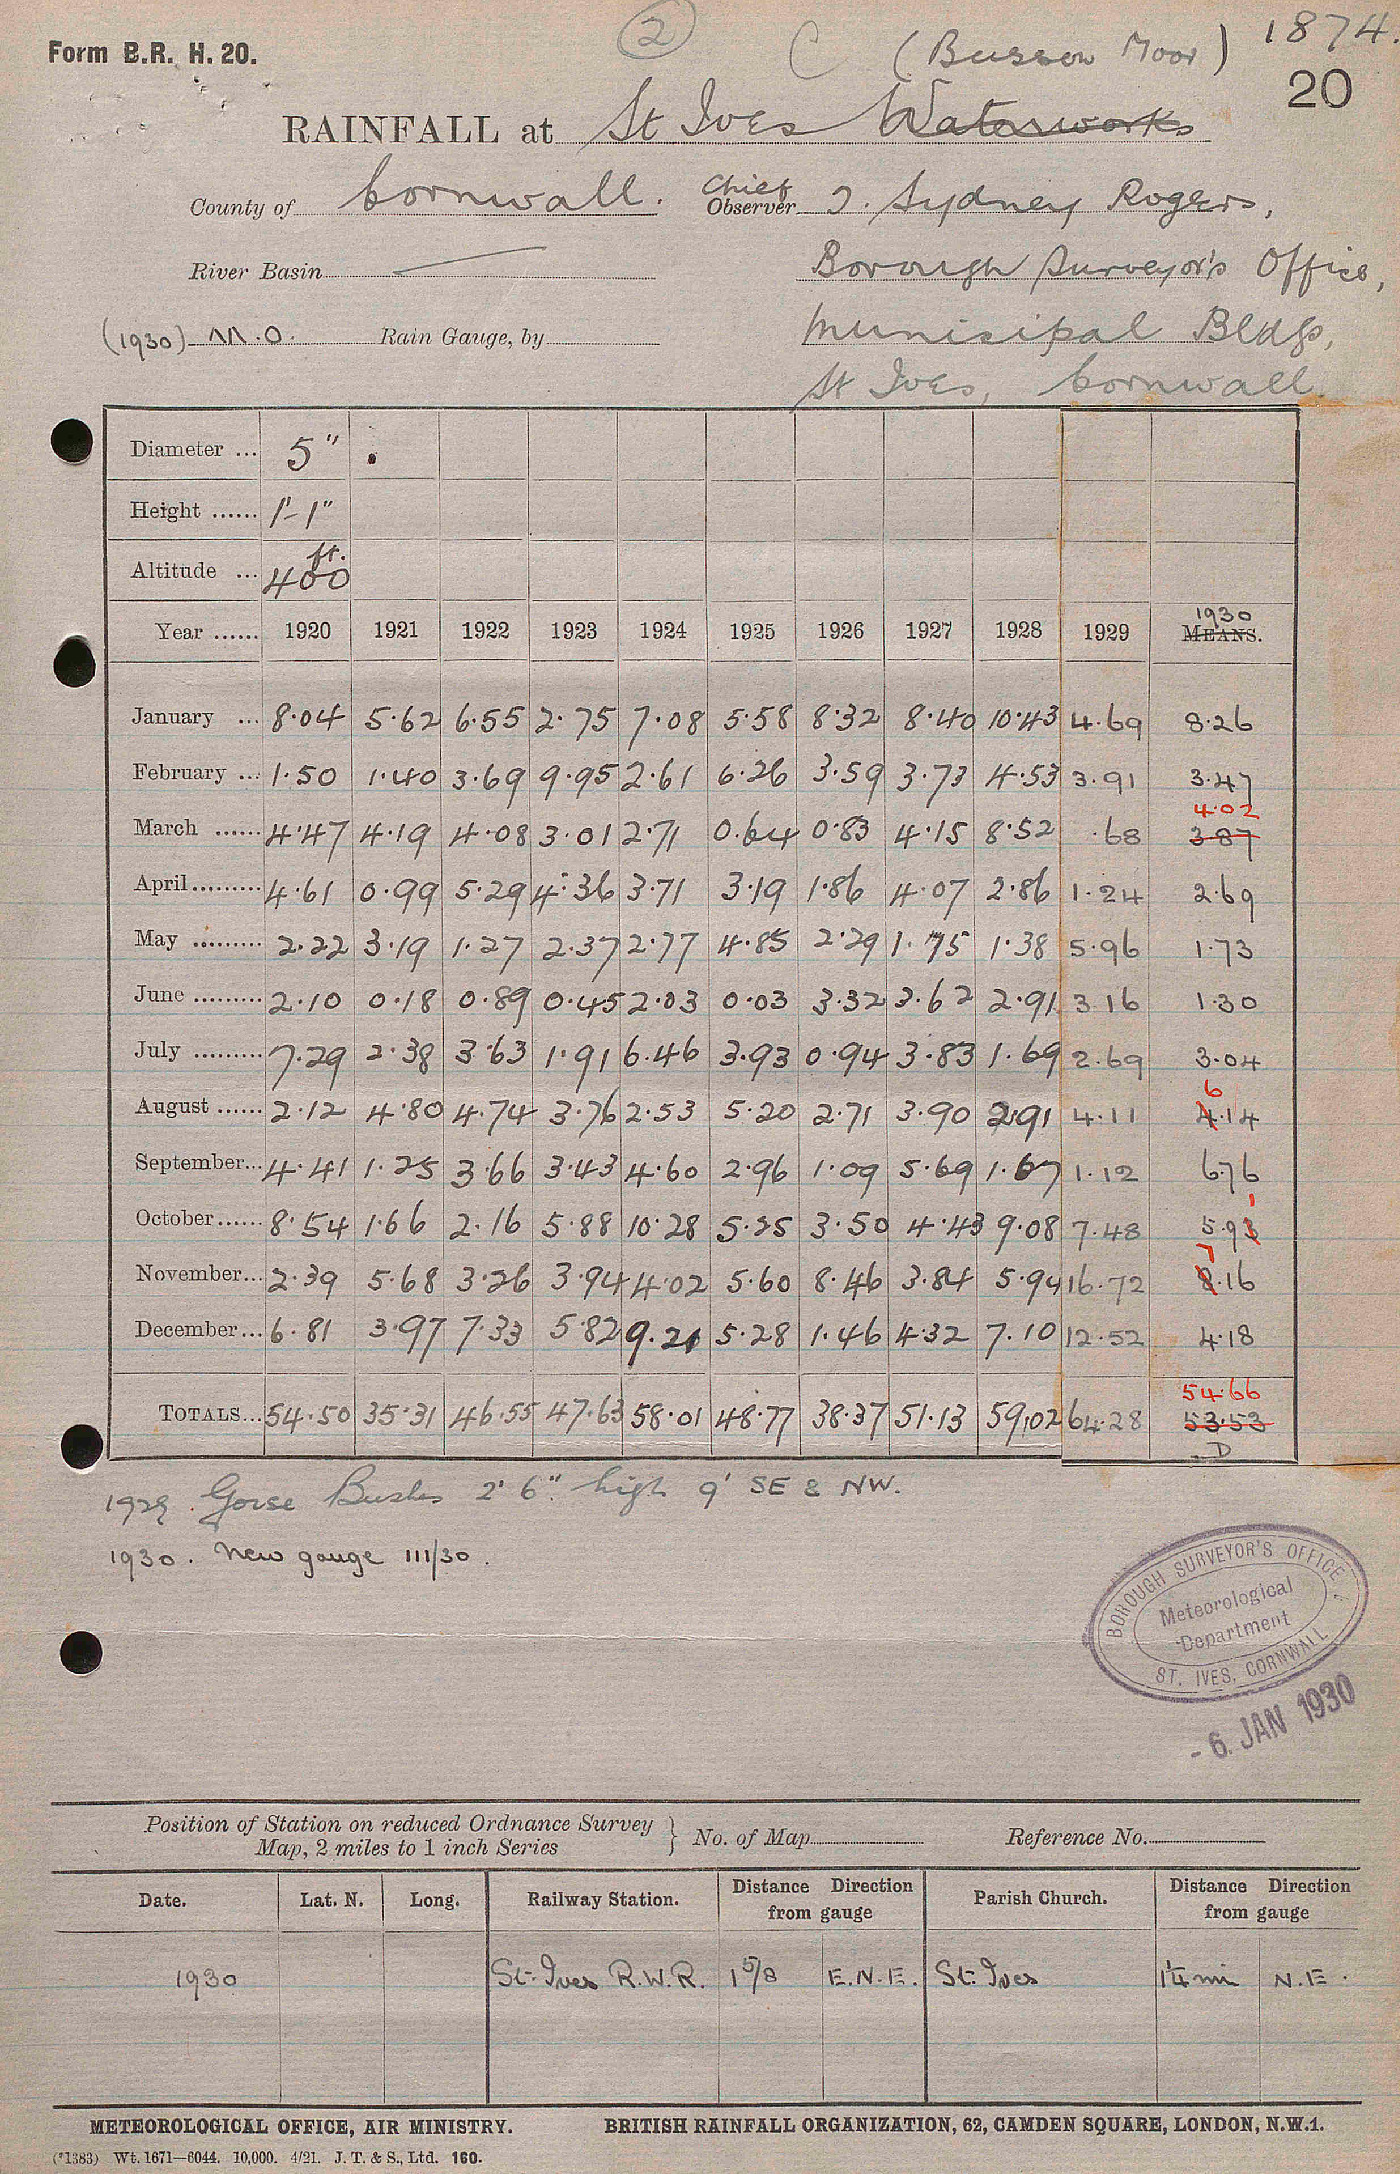 Form B.R. H. 20.
2
C (Bussow Moor) 1874.
20
RAINFALL at St Ives Waterworks
County of Cornwall. Chief Observer J. Sydney Rogers,
River Basin
Borough Surveyor's Office,
(1930) M.O. Rain Gauge, by
Munisipal Bldgs,
St Ives, Cornwall.
Diameter ... 5"
Height ...... 1'-1"
Altitude ... 400 ft.
Year ...... 1920 1921 1922 1923 1924 1925 1926 1927 1928 1929 MEANS. 1930
January ... 8.04 5.62 6.55 2.75 7.08 5.58 8.32 8.40 10.43 4.69 8.26
February ... 1.50 1.40 3.69 9.95 2.61 6.26 3.59 3.73 4.53 3.91 3.47
March ...... 4.47 4.19 4.08 3.01 2.71 0.64 0.83 4.15 8.52 .68 3.87 4.02
April ......... 4.61 0.99 5.29 4.36 3.71 3.19 1.86 4.07 2.86 1.24 2.69
May ......... 2.22 3.19 1.27 2.37 2.77 4.85 2.29 1.75 1.38 5.96 1.73
June ......... 2.10 0.18 0.89 0.45 2.03 0.03 3.32 3.62 2.91 3.16 1.30
July ......... 7.29 2.38 3.63 1.91 6.46 3.93 0.94 3.83 1.69 2.69 3.04
August ...... 2.12 4.80 4.74 3.76 2.53 5.20 2.71 3.90 2.91 4.11 4.14 6
September... 4.41 1.25 3.66 3.43 4.60 2.96 1.09 5.69 1.67 1.12 6.76
October ...... 8.54 1.66 2.16 5.88 10.28 5.25 3.50 4.43 9.08 7.48 5.93 1
November... 2.39 5.68 3.26 3.94 4.02 5.60 8.46 3.84 5.94 16.72 8.16 7
December... 6.81 3.97 7.33 5.82 9.21 5.28 1.46 4.32 7.10 12.52 4.18
TOTALS... 54.50 35.31 46.55 47.63 58.01 48.77 38.37 51.13 59.02 64.28 53.53 54.66
D
1929. Gorse Bushes 2' 6" high 9' SE & NW.
1930. New gauge 111/30.
BOROUGH SURVEYOR'S OFFICE
Meteorological
Department
ST. IVES, CORNWALL
- 6. JAN 1930
Position of Station on reduced Ordnance Survey
Map, 2 miles to 1 inch Series } No. of Map Reference No.
Date. Lat. N. Long. Railway Station. Distance Direction from gauge Parish Church. Distance Direction from gauge
1930 St. Ives R.W.R. 1 5/8 E.N.E. St. Ives 1¼ mi N.E.
METEOROLOGICAL OFFICE, AIR MINISTRY. BRITISH RAINFALL ORGANIZATION, 62, CAMDEN SQUARE, LONDON, N.W.1.
(*1383) Wt. 1671—6044. 10,000. 4/21. J. T. & S., Ltd. 160.